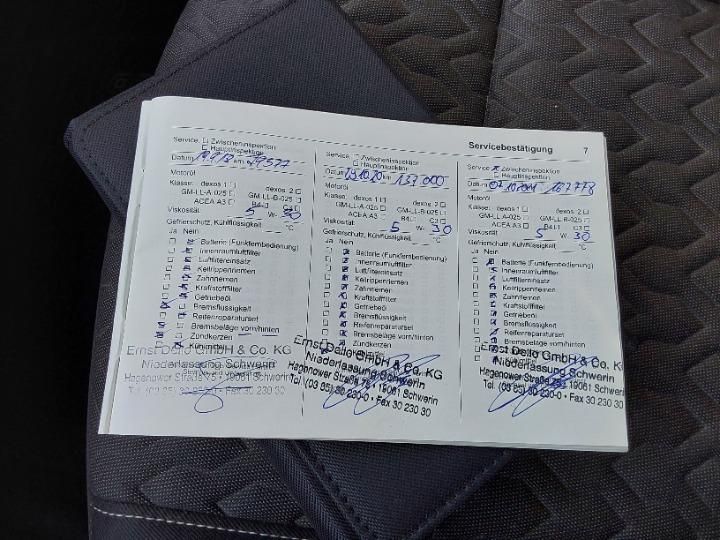 Servicebestätigung 7
Service: Zwischeninspektion
Hauptinspektion
Datum km
Motoröl
Klasse: dexos 1 dexos 2
GM-LL-A-025 GM-LL-B-025
ACEA A3 B4 C3
Viskosität: 5 W- 30
Gefrierschutz, Kühlflüssigkeit °C
Ja Nein
Batterie (Funkfernbedienung)
Innenraumluftfilter
Luftfiltereinsatz
Keilrippenriemen
Zahnriemen
Kraftstofffilter
Getriebeöl
Bremsflüssigkeit
Reifenreparaturset
Bremsbeläge vorn/hinten
Zündkerzen
Kühlmittel
Ernst Dello GmbH & Co. KG
Niederlassung Schwerin
Hagenower Straße 75 • 19061 Schwerin
Tel. (03 85) 30 230-0 • Fax 30 230 30
Service: Zwischeninspektion
Hauptinspektion
Datum km 137 000
Motoröl
Klasse: dexos 1 dexos 2
GM-LL-A-025 GM-LL-B-025
ACEA A3 B4 C3
Viskosität: 5 W- 30
Gefrierschutz, Kühlflüssigkeit °C
Ja Nein
Batterie (Funkfernbedienung)
Innenraumluftfilter
Luftfiltereinsatz
Keilrippenriemen
Zahnriemen
Kraftstofffilter
Getriebeöl
Bremsflüssigkeit
Reifenreparaturset
Bremsbeläge vorn/hinten
Zündkerzen
Ernst Dello GmbH & Co. KG
Niederlassung Schwerin
Hagenower Straße 75 • 19061 Schwerin
Tel. (03 85) 30 230-0 • Fax 30 230 30
Service: Zwischeninspektion
Hauptinspektion
Datum
Motoröl
Klasse: dexos 1 dexos 2
GM-LL-A-025 GM-LL-B-025
ACEA A3 B4 C3
Viskosität: 5 W- 30
Gefrierschutz, Kühlflüssigkeit °C
Ja Nein
Batterie (Funkfernbedienung)
Innenraumluftfilter
Luftfiltereinsatz
Keilrippenriemen
Zahnriemen
Kraftstofffilter
Getriebeöl
Bremsflüssigkeit
Reifenreparaturset
Bremsbeläge vorn/hinten
Zündkerzen
Ernst Dello GmbH & Co. KG
Niederlassung Schwerin
Hagenower Straße 75 • 19061 Schwerin
Tel. (03 85) 30 230-0 • Fax 30 230 30